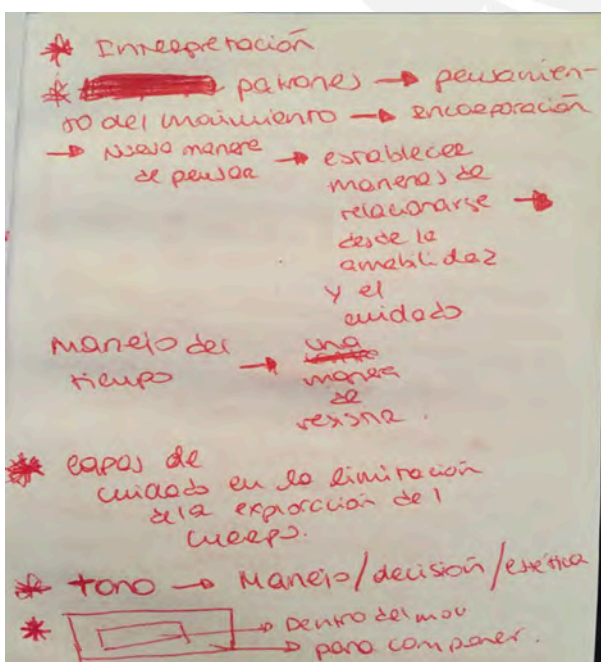 * Interpretación
* patrones → pensamien-
to del movimiento → encorporación
→ Nueva manera → establecer
de pensar maneras de
relacionarse →
desde la
amabilidaz
y el
cuidado
Manejo del → una
tiempo manera
de
resistir.
* capas de
cuidado en la limitación
de la exploración del
cuerpo.
* tono → Manejo/decisión/estética
* → Dentro del mov
→ para componer.